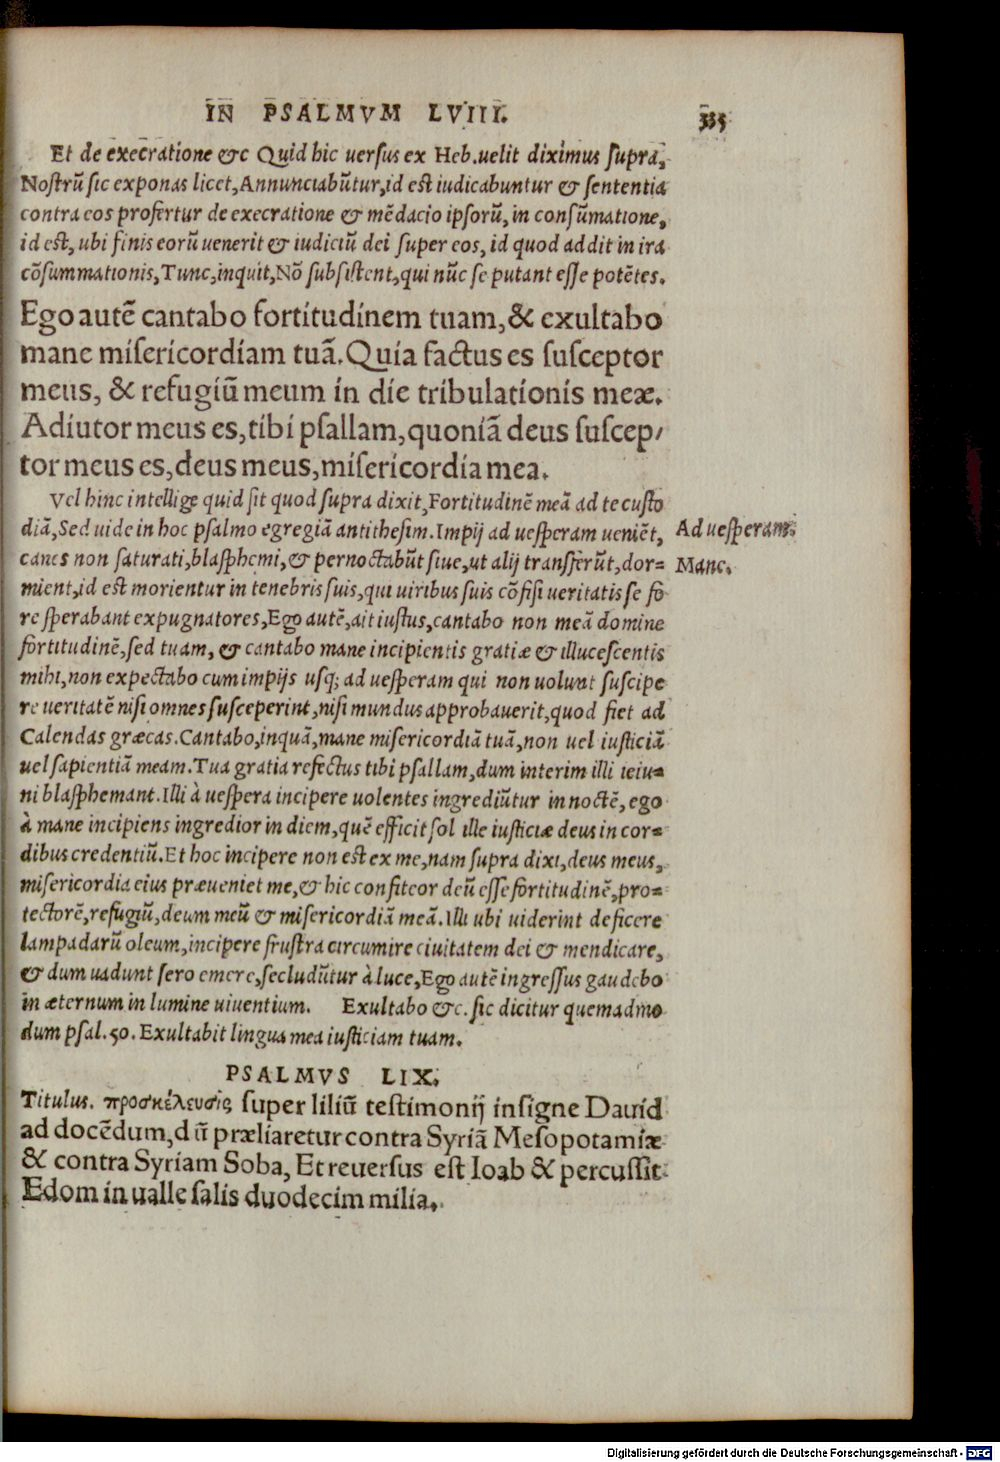 IN PSALMVM LVIII. 335
Et de execratione &c Quid hic uersus ex Heb.uelit diximus supra,
Nostrũ sic exponas licet,Annunciabũtur,id est iudicabuntur & sententia
contra eos profertur de execratione & mẽdacio ipsorũ,in consũmatione,
id est, ubi finis eorũ uenerit & iudiciũ dei super eos, id quod addit in ira
cõsummationis,Tunc,inquit,Nõ subsistent,qui nũc se putant esse potẽtes.
Ego autẽ cantabo fortitudinem tuam,& exultabo
mane misericordiam tuã.Quia factus es susceptor
meus, & refugiũ meum in die tribulationis meæ.
Adiutor meus es,tibi psallam,quoniã deus suscep/
tor meus es,deus meus,misericordia mea.
Vel hinc intellige quid sit quod supra dixit,Fortitudinẽ meã ad te custo
diã,Sed uide in hoc psalmo egregiã antithesim.Impij ad uesperam ueniẽt,
Ad uesperam.
canes non saturati,blasphemi,& pernoctabũt siue,ut alij transferũt,dor=
Mane.
mient,id est morientur in tenebris suis,qui uiribus suis cõfisi ueritatis se fo
re sperabant expugnatores,Ego autẽ,ait iustus,cantabo non meã domine
fortitudinẽ,sed tuam, & cantabo mane incipientis gratiæ & illucescentis
mihi,non expectabo cum impijs usq; ad uesperam qui non uolunt suscipe
re ueritatẽ nisi omnes susceperint,nisi mundus approbauerit,quod fiet ad
Calendas græcas.Cantabo,inquã,mane misericordiã tuã,non uel iusticiã
uel sapientiã meam.Tua gratia refectus tibi psallam,dum interim illi ieiu=
ni blasphemant.Illi à uespera incipere uolentes ingrediũtur in noctẽ, ego
à mane incipiens ingredior in diem,quẽ efficit sol ille iusticiæ deus in cor=
dibus credentiũ.Et hoc incipere non est ex me,nam supra dixi,deus meus,
misericordia eius præueniet me,& hic confiteor deũ esse fortitudinẽ,pro=
tectorẽ,refugiũ,deum meũ & misericordiã meã.Illi ubi uiderint deficere
lampadarũ oleum,incipere frustra circumire ciuitatem dei & mendicare,
& dum uadunt sero emere,secludũtur à luce,Ego autẽ ingressus gaudebo
in æternum in lumine uiuentium. Exultabo &c. sic dicitur quemadmo
dum psal.50.Exultabit lingua mea iusticiam tuam.
PSALMVS LIX.
Titulus. προσκέλευσις super liliũ testimonij insigne Dauid
ad docẽdum,dũ præliaretur contra Syriã Mesopotamiæ
& contra Syriam Soba, Et reuersus est Ioab & percussit
Edom in ualle salis duodecim milia.
Digitalisierung gefördert durch die Deutsche Forschungsgemeinschaft - DFG